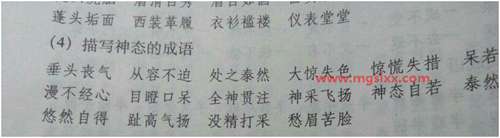 蓬头垢面 西装革履 衣衫褴褛 仪表堂堂
(4) 描写神态的成语
垂头丧气 从容不迫 处之泰然 大惊失色 惊慌失措 呆若
www.mgslxx.com
漫不经心 目瞪口呆 全神贯注 神采飞扬 神态自若 泰然
悠然自得 趾高气扬 没精打采 愁眉苦脸